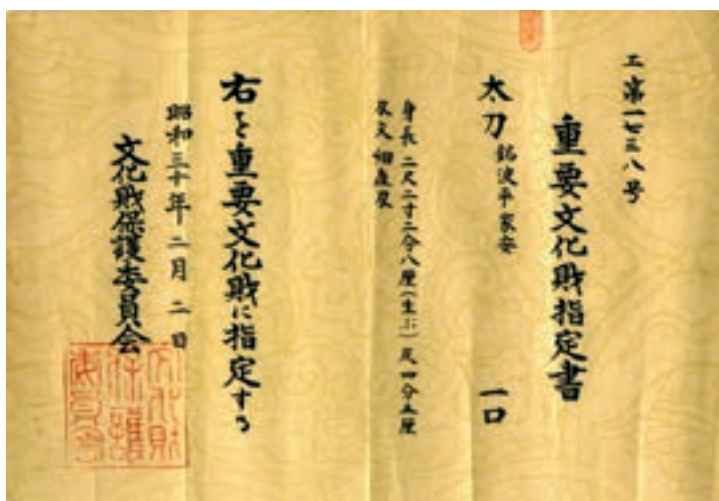 工第一七三八号
重要文化財指定書
太刀 銘波平家安 一口
身長 二尺二寸二分八厘(生ぶ) 反 四分五厘
刃文 細直刃
右を重要文化財に指定する
昭和三十年二月二日
文化財保護委員会
文化財保護委員会